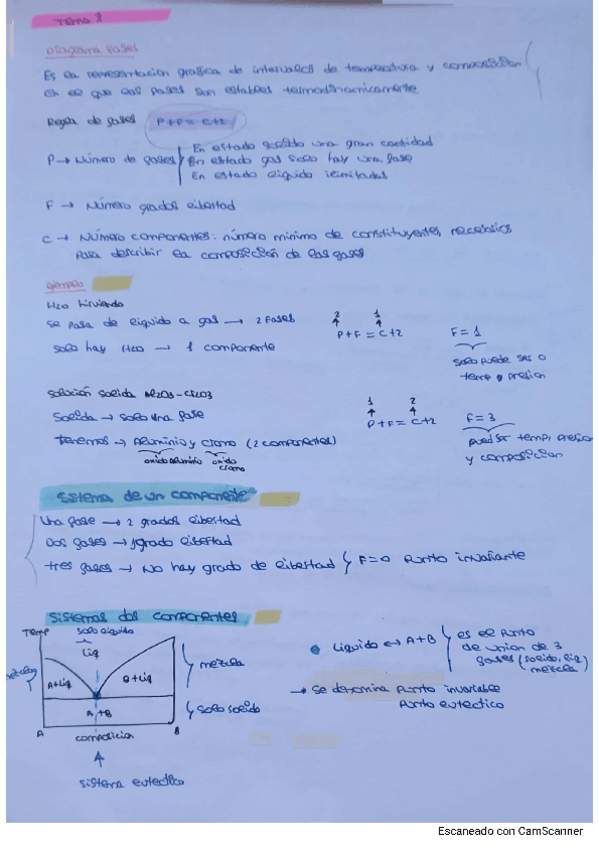 Tema 3
Diagrama fases
Es la representacion grafica de intervalos de temperatura y composicion
en el que las fases son estables termodinamicamente
Regla de fases P+F = C+2
En estado solido una gran cantidad
P → Número de fases En estado gas solo hay una fase
En estado liquido ilimitadas
F → Número grados libertad
C → Número componentes: número minimo de constituyentes, necesarios
para describir la composición de las fases
ejemplo
H2O hirviendo
se pasa de liquido a gas → 2 fases
2 1
P+F = C+2 F = 1
solo hay H2O → 1 componente
solo puede ser o
temp o presion
solución solida Al2O3-Cr2O3
solida → solo una fase
1 2
P+F = C+2 F = 3
Tenemos → Aluminio y cromo (2 componentes)
oxido aluminio oxido cromo
pued ser temp, presion
y composicion
Sistema de un componente
Una fase → 2 grados libertad
Dos fases → 1 grado libertad
tres fases → No hay grado de libertad F=0 Punto invariante
Sistemas dos componentes
Temp
solo liquido
Liq
mezclas
A+Liq
B+Liq
mezcla
A+B
solo solido
A
composicion
B
sistema eutectico
Liquido ↔ A+B es el punto
de union de 3
fases (solido, liq,
mezcla)
→ se denomina Punto invariable
Punto eutectico
Escaneado con CamScanner